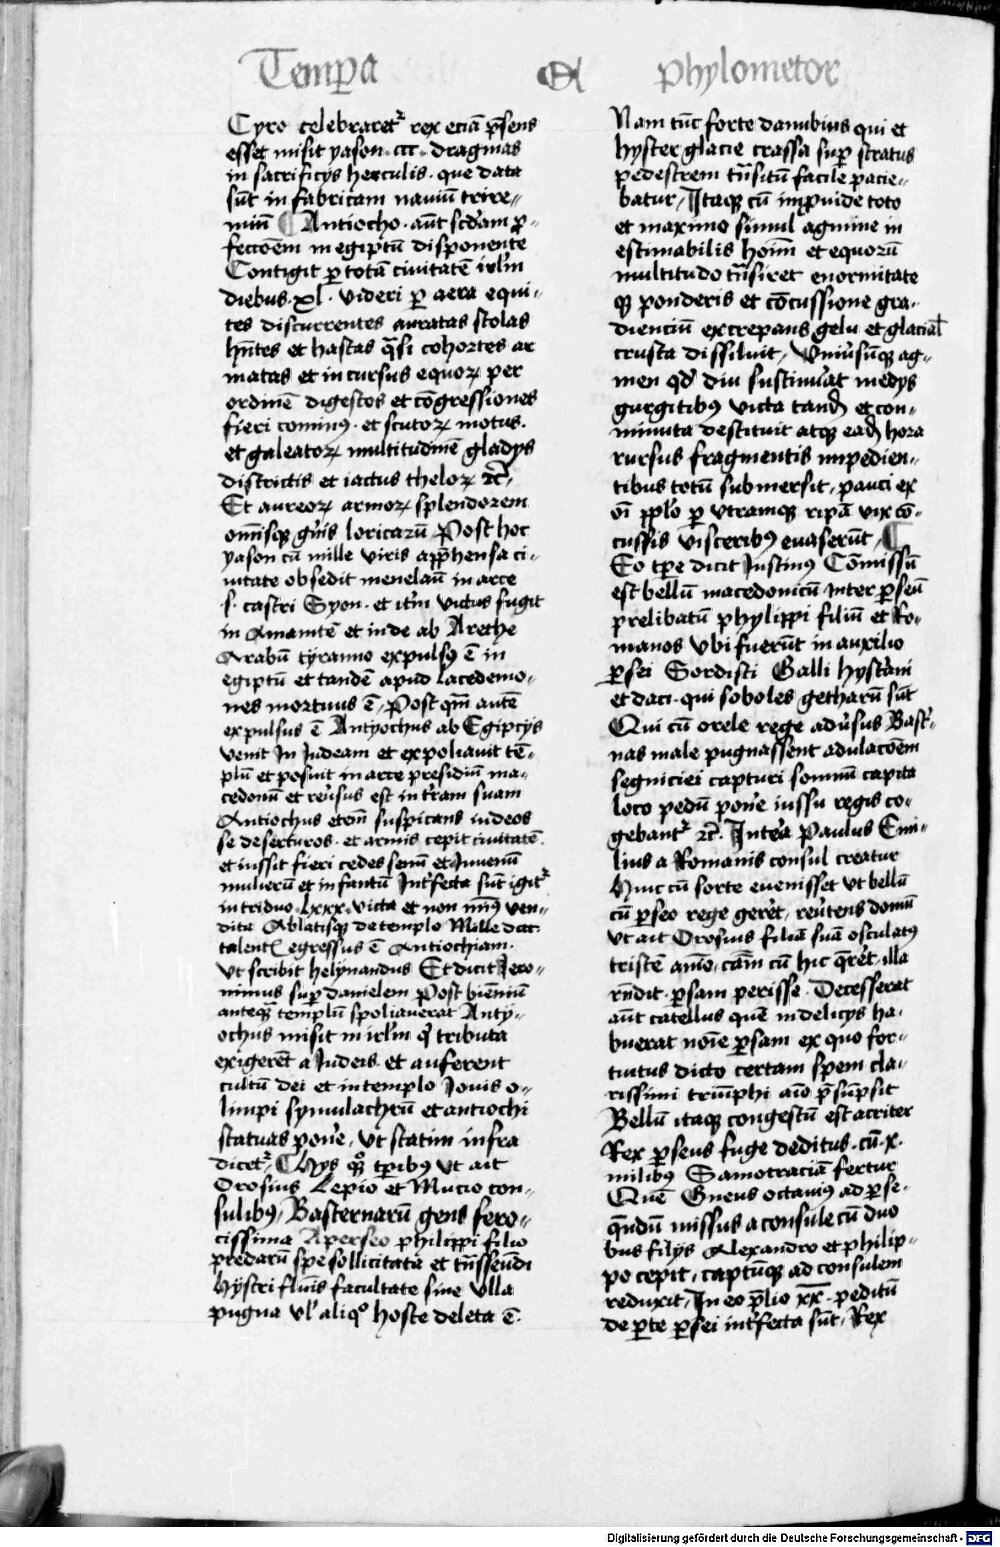 Tempa et phylometor
Cyro celebraretr rex eciā p̄sens
esset misit yason · ccc · dragmas
in sacrificijs herculis · que data
sūt in fabricam nauiū trire-
miū ¶ Antiocho · aūt scd̄am p̱-
fectōem in egiptū disponente
Contigit ꝑ totā ciuitatē irl̄m
diebus · xl · videri ꝑ aera equi-
tes discurrentes auratas stolas
hn̄tes et hastas q̄si cohortes ar
matas et in cursus equoꝝ per
ordinē digestos et cōgressiones
fieri cominꝰ · et scutoꝝ motus ·
et galeatoꝝ multitudinē gladijs
districtis et iactus theloꝝ ⁊c̄
Et aureoꝝ armoꝝ splendorem
omīsqꝫ gn̄is loricarū / Post hoc
yason cū mille viris app̄hensa ci-
uitate obsedit menelaū in arce
·s· castri Syon · et itm̄ victus fugit
in Amamtē et inde ab Arethe
Arabū tyranno expulsꝰ ē in
egiptū et tandē apud lacedemo-
nes mortuus ē / Post qm̄ autē
expulsus ē Antyochus ab Egipcijs
venit In Iudeam et expoliauit tē-
plū et posuit in arce presidiū ma-
cedonū et reūsus est in tr̄am suam
Antiochus etem̄ suspicans iudeos
se deserturos · et armis cepit ciuitatē
et iussit fieri cedes senū et Iuuenū
mulierū et infantū Int̄fecta sūt igitr
in triduo · lxxx · victa et non minꝰ ven-
dita Ablatisqꝫ de templo Mille dcc
talentꝭ egressus ē Antiochiam ·
Vt scribit helynandus Et dicit Iero-
nimus suꝑ danielem Post bienniū
anteqꝫ templū spoliauerat Anty-
ochus misit in irl̄m qͥ tributa
exigerēt a Iudeis et auferent
cultū dei et in templo Iouis o-
limpi symulachrū et antiochi
statuas pon̄e / Vt statim infra
dicetr / ¶ Hys qͦꝫ tꝑibꝰ vt ait
Orosius Lepio et Mucio con-
sulibꝰ / Basternarū gens fero-
cissima A perseo philippi filio
predarū spe sollicitata et trn̄sseūdi
Hystri fluīs facultate sine vlla
pugna vl̓ aliqͦ hoste deleta ē ·
Nam tūc forte danubius qui et
hyster glacie crassa suꝑ stratus
pedestrem trn̄situ facile pacie-
batur / Itaqꝫ cū imꝓuide toto
et maximo simul agmine in
estimabilis hoīm et equorū
multitudo trn̄siret enormitate
qꝫ ponderis et cōcussione gra-
dienciū excrepans gelu et glacial̄
crusta dissiluit / Vniūsūqꝫ ag-
men qd̄ diu sustinuat medijs
gurgitibꝰ victa tand̄ et con-
minuta destituit atqꝫ ead̄ hora
rursus fragmentis impedien-
tibus totū submersit / pauci ex
oī pplo ꝑ vtramqꝫ ripā vix cō-
cussis visceribꝰ euaserūt / ¶
Eo tꝑe dicit Iustinꝰ Cōmissū
est bellū macedonicū inter ꝑseū
prelibatū phylippi filiū et Ro-
manos vbi fuerūt in auxilio
ꝑsei Sordisti Galli hystrini
et daci · qui soboles getharū sūt
Qui cū orele rege adūsus Bastr̄-
nas male pugnassent adulacōem
segniciei capturi somnū capita
loco pedū pon̄e iussu regis co-
gebantr ⁊c̄ · Intēa Paulus Emi-
lius a Romanis consul creatur
Huic cū sorte euenisset vt bellū
cū ꝑseo rege gerēt / reūtens domū
vt ait Orosius filiā suā osculatꝰ
tristē aīo / cām cū hic q̄rēt · illa
rn̄dit · ꝑsam perisse · Decesserat
aūt catellus quē in delicijs ha-
buerat noīe ꝑsam ex quo for-
tuitus dicto certam spem cla-
rissimi triūphi aīo p̄sūpsit
Bellū itaqꝫ congestū est acriter
Rex ꝑseus fuge deditus · cū · x ·
milibꝰ Samotraciā fertur
Quē Gneus octauiꝰ ad ꝑse-
qn̄dū missus a consule cū duo
bus filijs Alexandro et philip-
po cepit / captūqꝫ ad consulem
reduxit / In eo p̄lio xx̄ · peditū
de ꝑte ꝑsei int̄fecta sūt / Rex
Digitalisierung gefördert durch die Deutsche Forschungsgemeinschaft - DFG